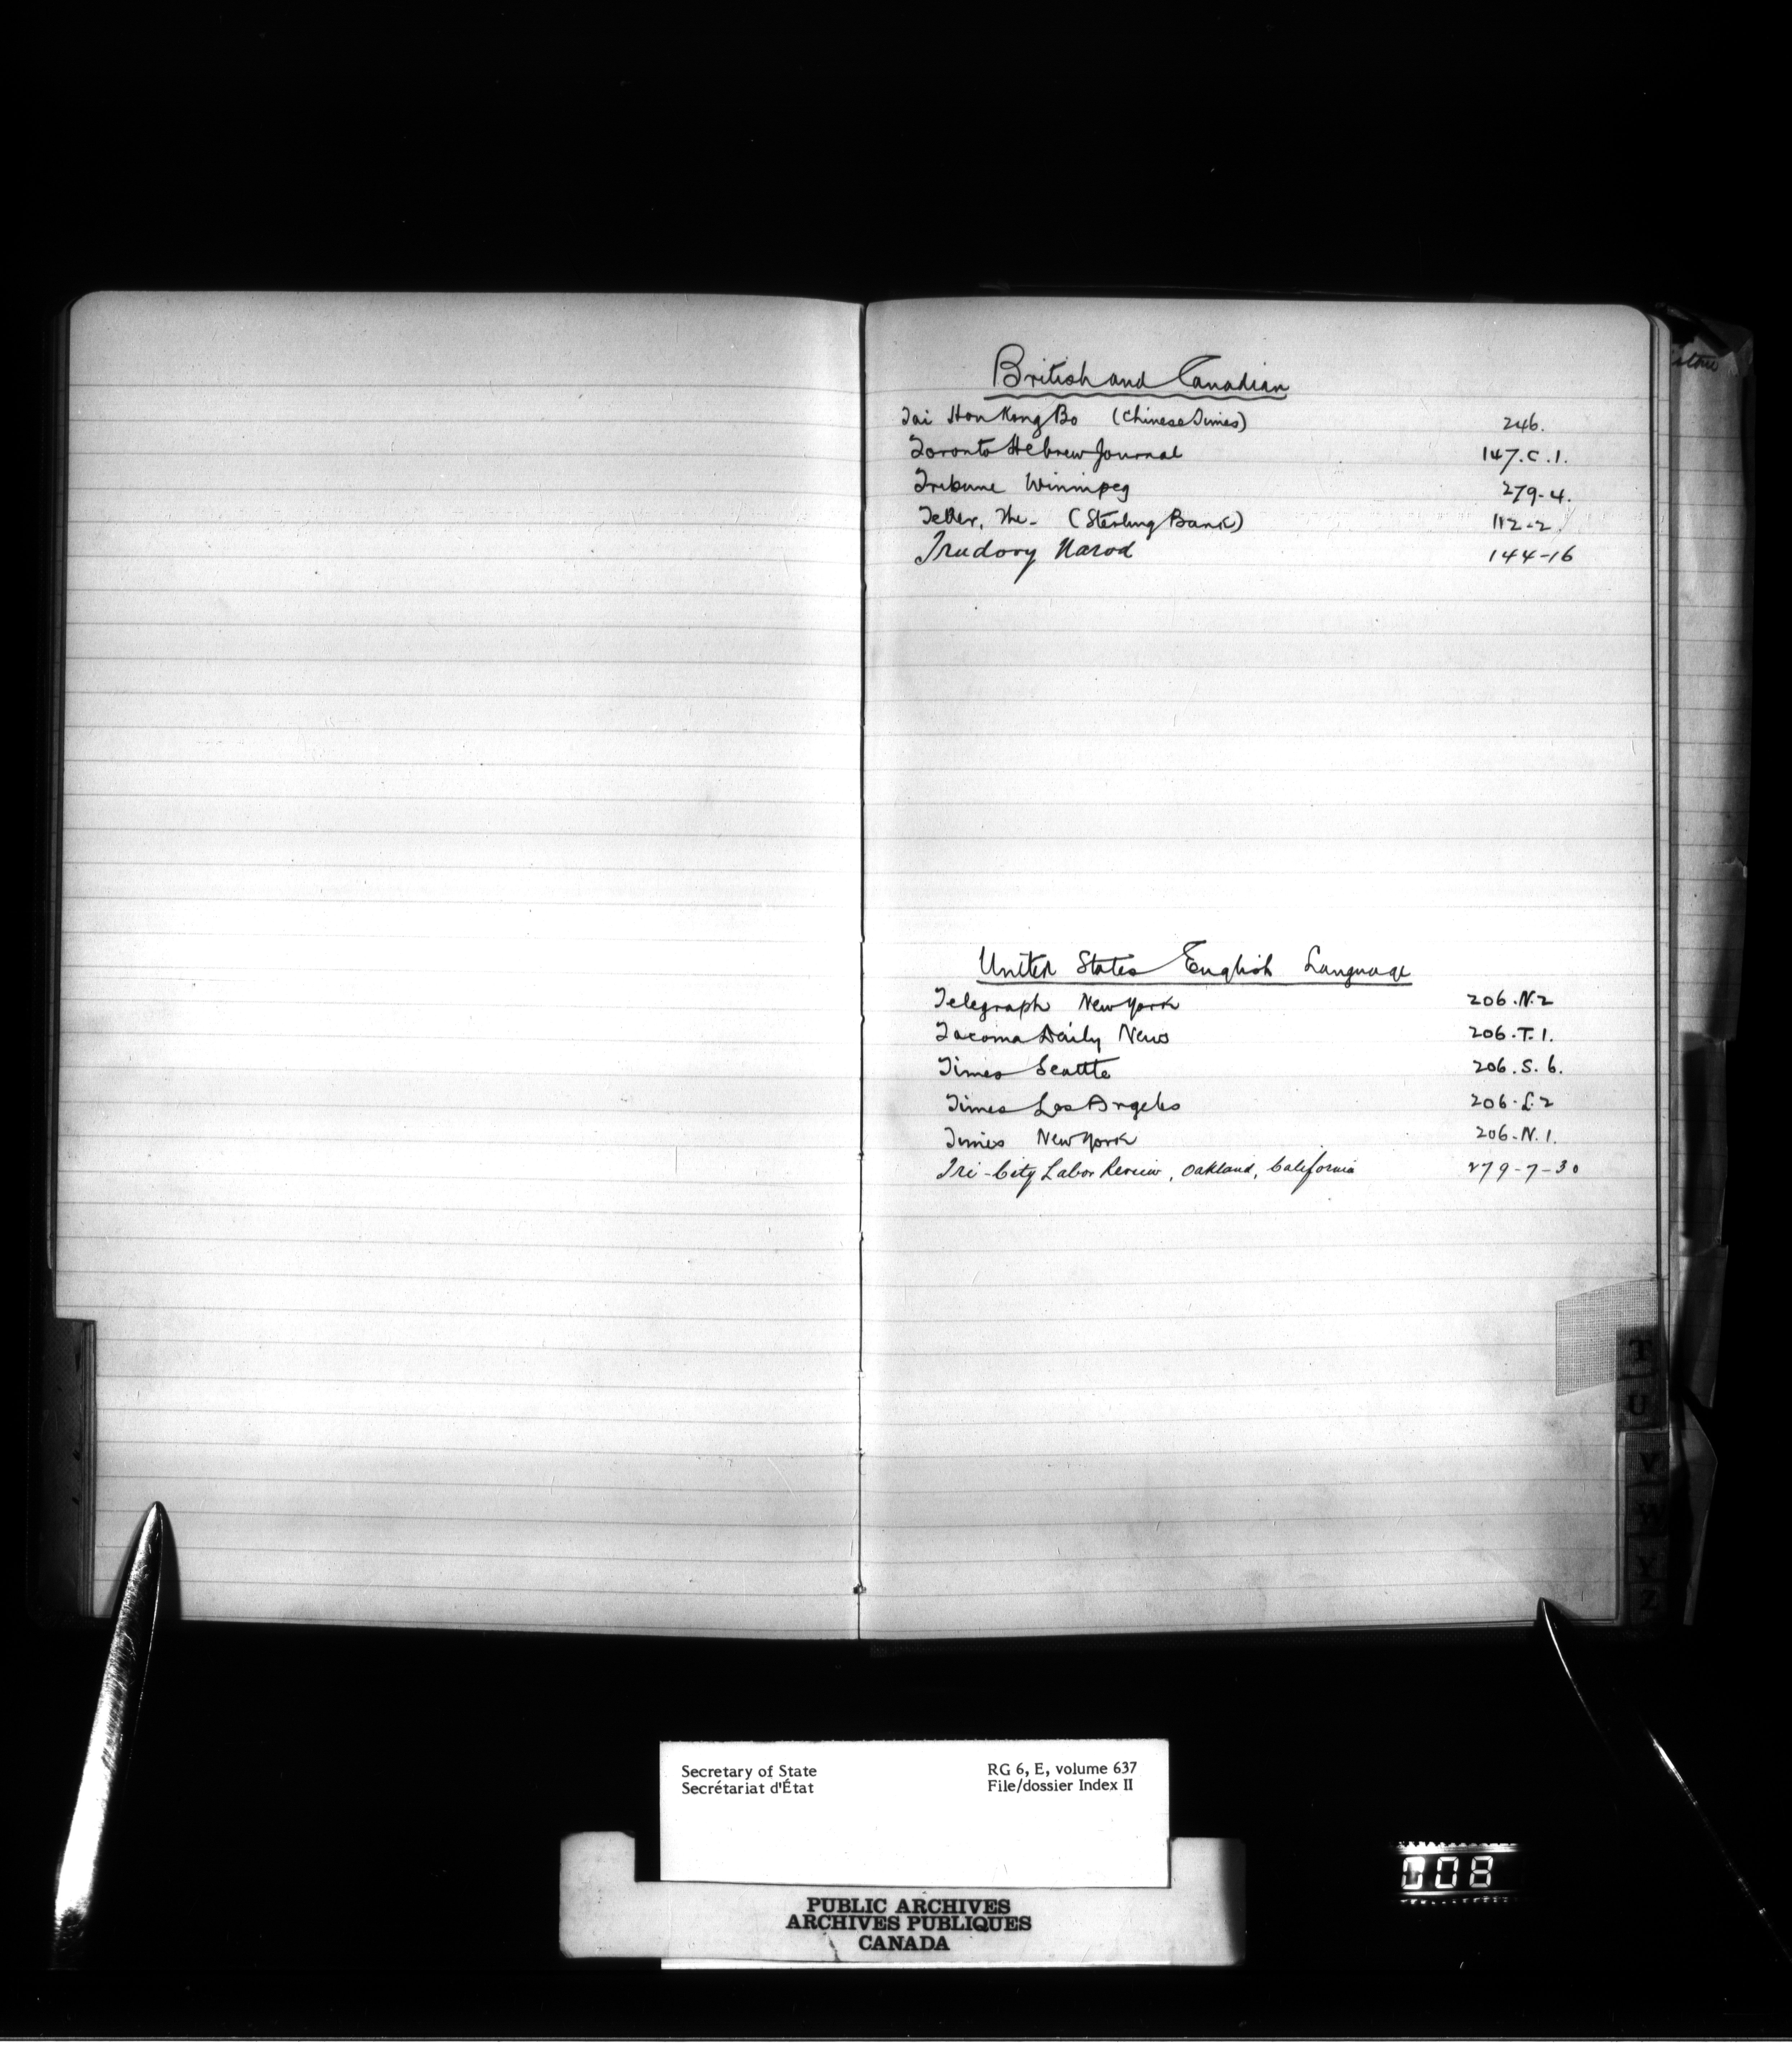 British and Canadian
Tai Hon Kong Bo (Chinese Times) 246.
Toronto Hebrew Journal 147.C.1.
Tribune Winnipeg 279-4.
Teller, The - (Sterling Bank) 112-2
Trudovy Narod 144-16
United States English Language
Telegraph New York 206.N.2
Tacoma Daily News 206.T.1.
Times Seattle 206.S.6.
Times Los Angeles 206.L.2
Times New York 206.N.1.
Tri-City Labor Review, Oakland, California 279-7-30
T
U
V
W
Y
Z
Secretary of State RG 6, E, volume 637
Secrétariat d'État File/dossier Index II
PUBLIC ARCHIVES
ARCHIVES PUBLIQUES
CANADA
008